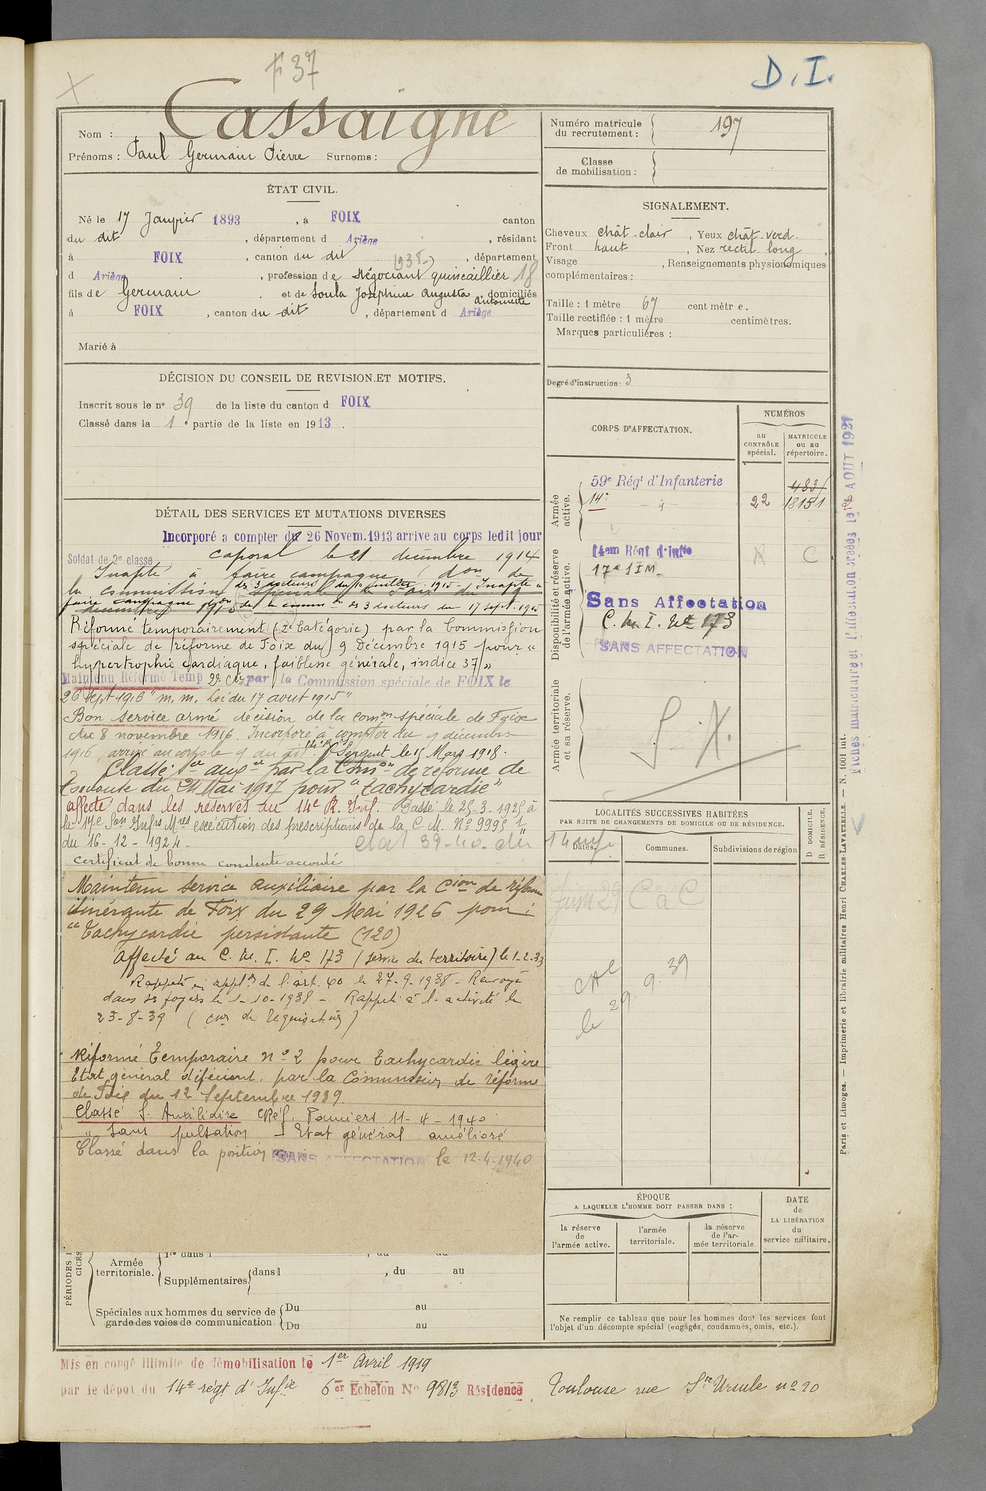 F 37
D. I.
Nom : Cassaigne
Prénoms : Paul Germain Pierre Surnoms :
Numéro matricule du recrutement : 197
Classe de mobilisation :
ÉTAT CIVIL.
Né le 17 Janvier 1893, à FOIX canton
du dit, département d Ariège, résidant
à FOIX, canton du dit 1938, département
d Ariège, profession de Négociant quincaillier 18
fils de Germain et de Soula Joséphine Augusta Antoinette domiciliés
à FOIX, canton du dit, département d Ariège
Marié à
SIGNALEMENT.
Cheveux chât. clair, Yeux chât. verd.
Front haut, Nez rectil. long,
Visage , Renseignements physionomiques
complémentaires :
Taille : 1 mètre 67 centimètre.
Taille rectifiée : 1 mètre centimètres.
Marques particulières :
Degré d'instruction : 3
DÉCISION DU CONSEIL DE REVISION ET MOTIFS.
Inscrit sous le nº 39 de la liste du canton d FOIX
Classé dans la 1e partie de la liste en 1913.
DÉTAIL DES SERVICES ET MUTATIONS DIVERSES
Incorporé a compter du 26 Novem. 1913 arrive au corps ledit jour
Soldat de 2e classe caporal le 21 décembre 1914
Inapte à faire campagne don de
la commission
des 3 docteurs du juillet 1915 - Inapte à
faire campagne son de la comm on des 3 docteurs du 17 sept. 1915
Réformé temporairement (2e Catégorie) par la Commission
spéciale de réforme de Foix du 9 Décembre 1915 pour "
hypertrophie cardiaque, faiblesse générale, indice 37 "
Maintenu Réformé Temp 2e C. par la Commission spéciale de FOIX le
26 Sept 1916 "m. m. Loi du 17 août 1915"
Bon service armé décision de la comon spéciale de Foix
du 8 novembre 1916. Incorporé à compter du 9 décembre
1916, arrivé au corps le 9 du dit. Sergent le 15 Mars 1918.
Classé Sce auxre par la Comon de réforme de
Toulouse du 24 Mai 1917 pour "tachycardie"
affecté dans les réserves du 14e R. Inf. Passé le 25-3-1925 à
la 17e Son Infrs Mres exécution des prescriptions de la C. M. Nº 9995 1
du 16-12-1924.
etat 39-40. du 14
Certificat de bonne conduite accordé
Maintenu service auxiliaire par la Cion de réforme
itinérante de Foix du 29 Mai 1926 pour :
"Tachycardie persistante (120)
affecté au C. M. I. Nº 173 (service du territoire) le 1-2-33
Rappelé en appon de l'art. 40 le 27-9-1938 - Renvoyé
dans ses foyers le 1-10-1938 - Rappelé à l'activité le
23-8-39 (Con de Requisition)
Réformé Temporaire nº 2 pour Tachycardie légère
Etat général déficient. par la Commission de réforme
de Foix du 12 Septembre 1939.
Classé S. Auxiliaire CRéf. Pamiers 11-4-1940
" Sans pulsation - Etat général amélioré
Classé dans la position SANS AFFECTATION le 12-4-1940
CORPS D'AFFECTATION.
NUMÉROS
au CONTRÔLE spécial.
MATRICULE ou au répertoire.
Armée active.
59e Régt d'Infanterie 4831
14e -"- 22 18151
Disponibilité et réserve de l'armée active.
14em Régt d'Infie R C
17e SIM
Sans Affectation
C. M. I. Nº 173
SANS AFFECTATION
Armée territoriale et sa réserve.
S. X.
LOCALITÉS SUCCESSIVES HABITÉES
PAR SUITE DE CHANGEMENTS DE DOMICILE OU DE RÉSIDENCE.
Dates. Communes. Subdivisions de région D DOMICILE. R RÉSIDENCE.
Juin 29 C a C
cAe 9.39
le 29
ÉPOQUE
A LAQUELLE L'HOMME DOIT PASSER DANS :
la réserve de l'armée active.
l'armée territoriale.
la réserve de l'armée territoriale.
DATE de LA LIBÉRATION du service militaire.
Ne remplir ce tableau que pour les hommes dont les services font
l'objet d'un décompte spécial (engagés, condamnés, omis, etc.).
PÉRIODES
Armée territoriale.
1re dans l , du au
Supplémentaires dans l , du au
Spéciales aux hommes du service de garde des voies de communication
Du au
Du au
Mis en congé illimité de démobilisation le 1er Avril 1919
par le dépôt du 14e régt d'Infie 6er Echelon Nº 9813 Résidence Toulouse rue Ste Ursule nº 20
Fiches matriculaire et d'affectation créées le AOUT 1921
Paris et Limoges. — Imprimerie et librairie militaires Henri CHARLES-LAVAUZELLE. — N. 1001 int.